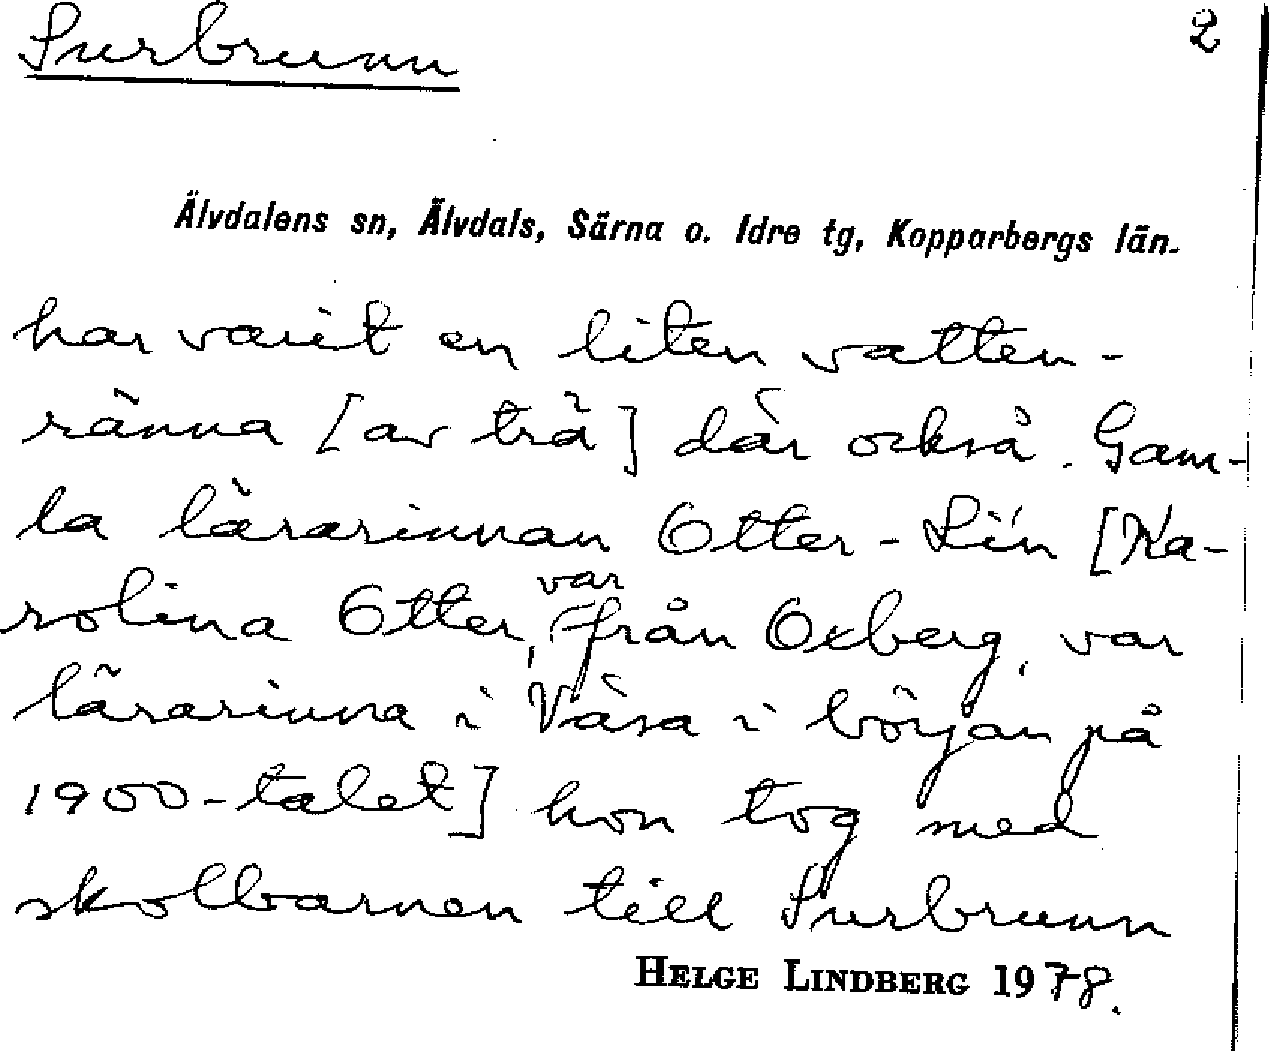 Surbrunn 2
Älvdalens sn, Älvdals, Särna o. Idre tg, Kopparbergs län.
har varit en liten vatten-
ränna [av trä] där också. Gam-
la lärarinnan Otter-Lin [Ka-
rolina Otter, var från Oxberg, var
lärarinna i Våsa i början på
1900-talet] hon tog med
skolbarnen till Surbrunn
HELGE LINDBERG 1978.